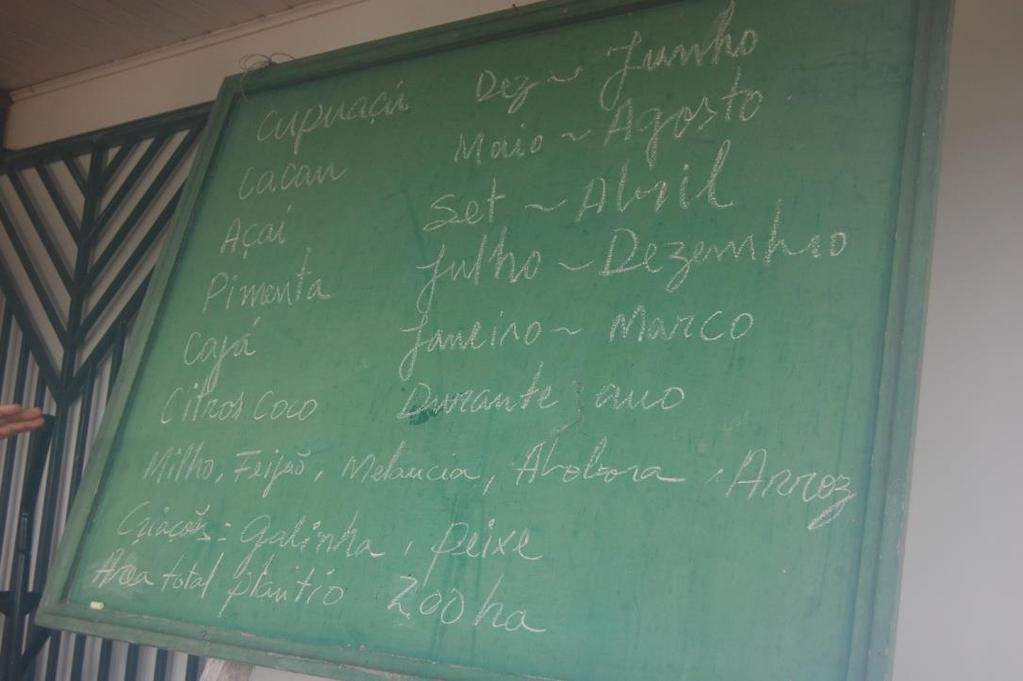 Cupuaçú Dez ~ Junho
Cacau Maio ~ Agosto
Açaí Set ~ Abril
Pimenta Julho ~ Dezembro
Cajá Janeiro ~ Marco
Citros Coco Durante, ano
Milho, Feijão, Melancia, Abobora, Arroz
Criacões = galinha, peixe
Area total plantio 200 ha